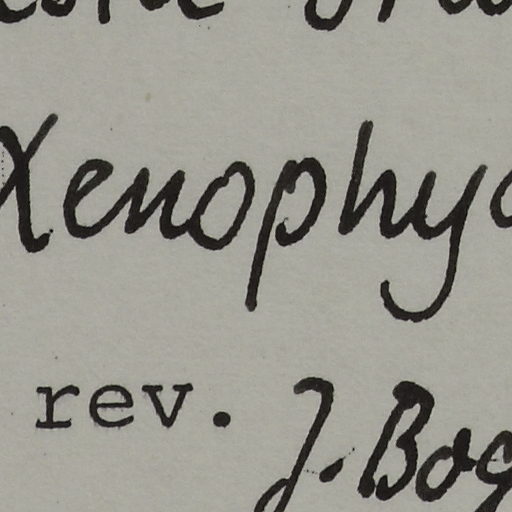 Xenophy
rev. J. Bog